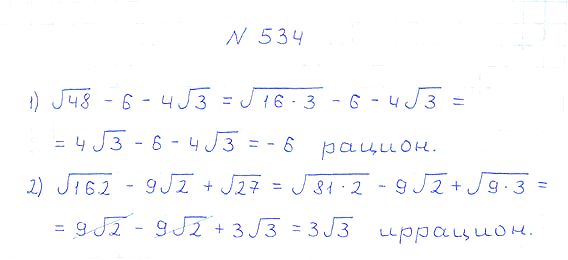 N 534
1) √48 - 6 - 4√3 = √16·3 - 6 - 4√3 =
= 4√3 - 6 - 4√3 = -6 рацион.
2) √162 - 9√2 + √27 = √81·2 - 9√2 + √9·3 =
= 9√2 - 9√2 + 3√3 = 3√3 иррацион.